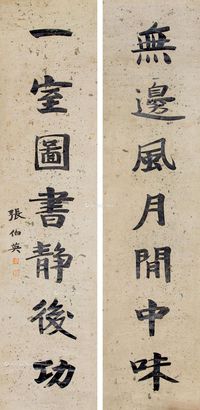 無邊風月閒中味
一室圖書靜後功
張伯英